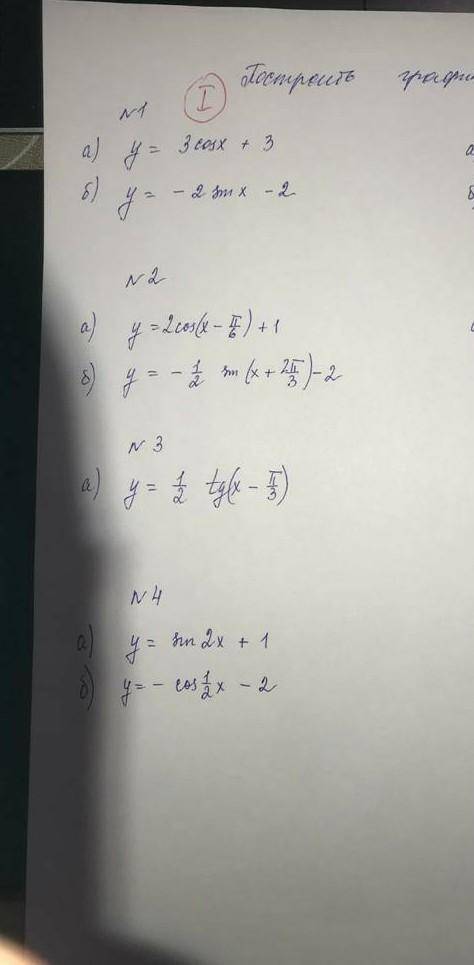 Построить график
I
№1
а) y = 3cosx + 3
б) y = -2 sin x - 2
№2
а) y = 2cos(x - π/6) + 1
б) y = - 1/2 sin (x + 2π/3) - 2
№3
а) y = 1/2 tg(x - π/3)
№4
а) y = sin 2x + 1
б) y = - cos 1/2 x - 2